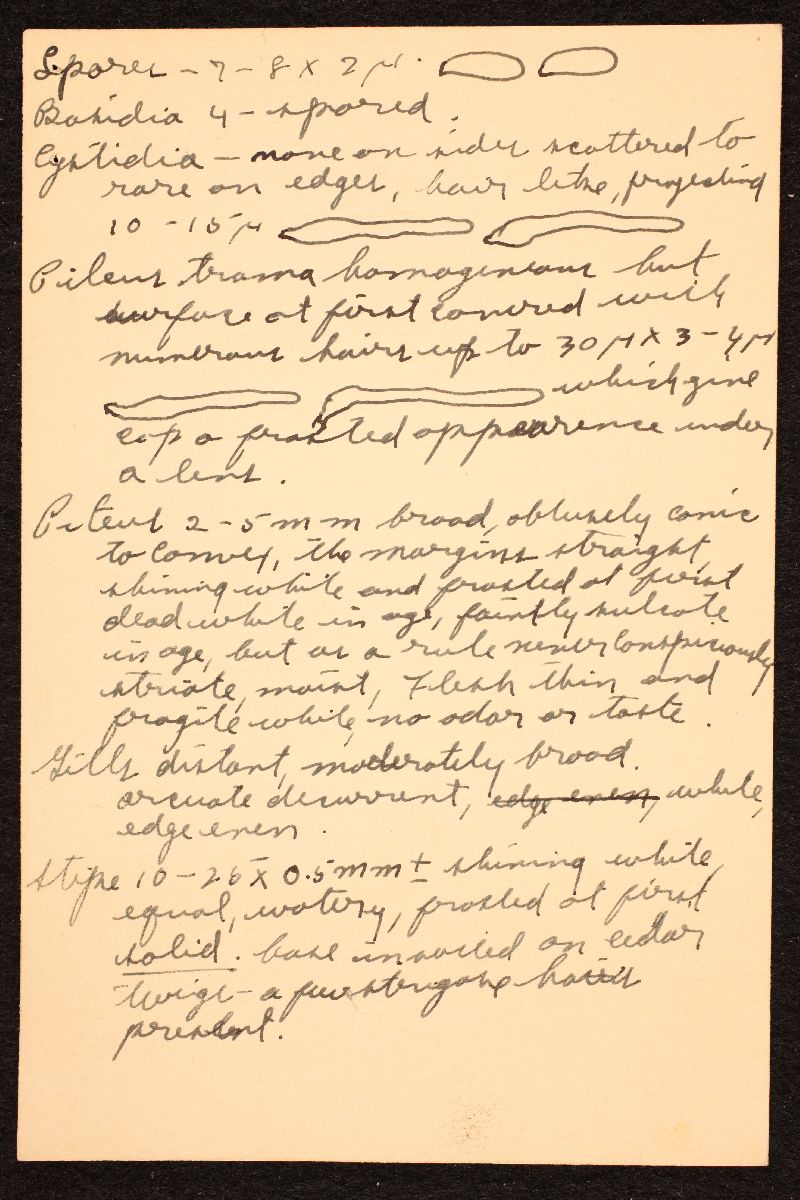 Spores – 7 – 8 x 2 µ.
Basidia 4 – spored.
Cystidia – none on sides scattered to
rare on edges, hair like, projecting
10 – 15 µ
Pileus trama homogeneous but
surface at first covered with
numerous hairs up to 30 µ x 3 – 4 µ
which give
cap a frosted appearence under
a lens.
Pileus 2 – 5 mm broad, obtusely conic
to convex, the margins straight,
shining white and frosted at first
dead white in age, faintly sulcate
in age, but as a rule never conspicuously
striate, moist, Flesh thin and
fragile white, no odor or taste.
Gills distant, moderately broad.
arcuate decurrent, edge even, white,
edge even.
Stipe 10 – 25 x 0.5 mm ± shining white,
equal, watery, frosted at first
solid. base inserted on cedar
twigs – a few strigose hairs
present.